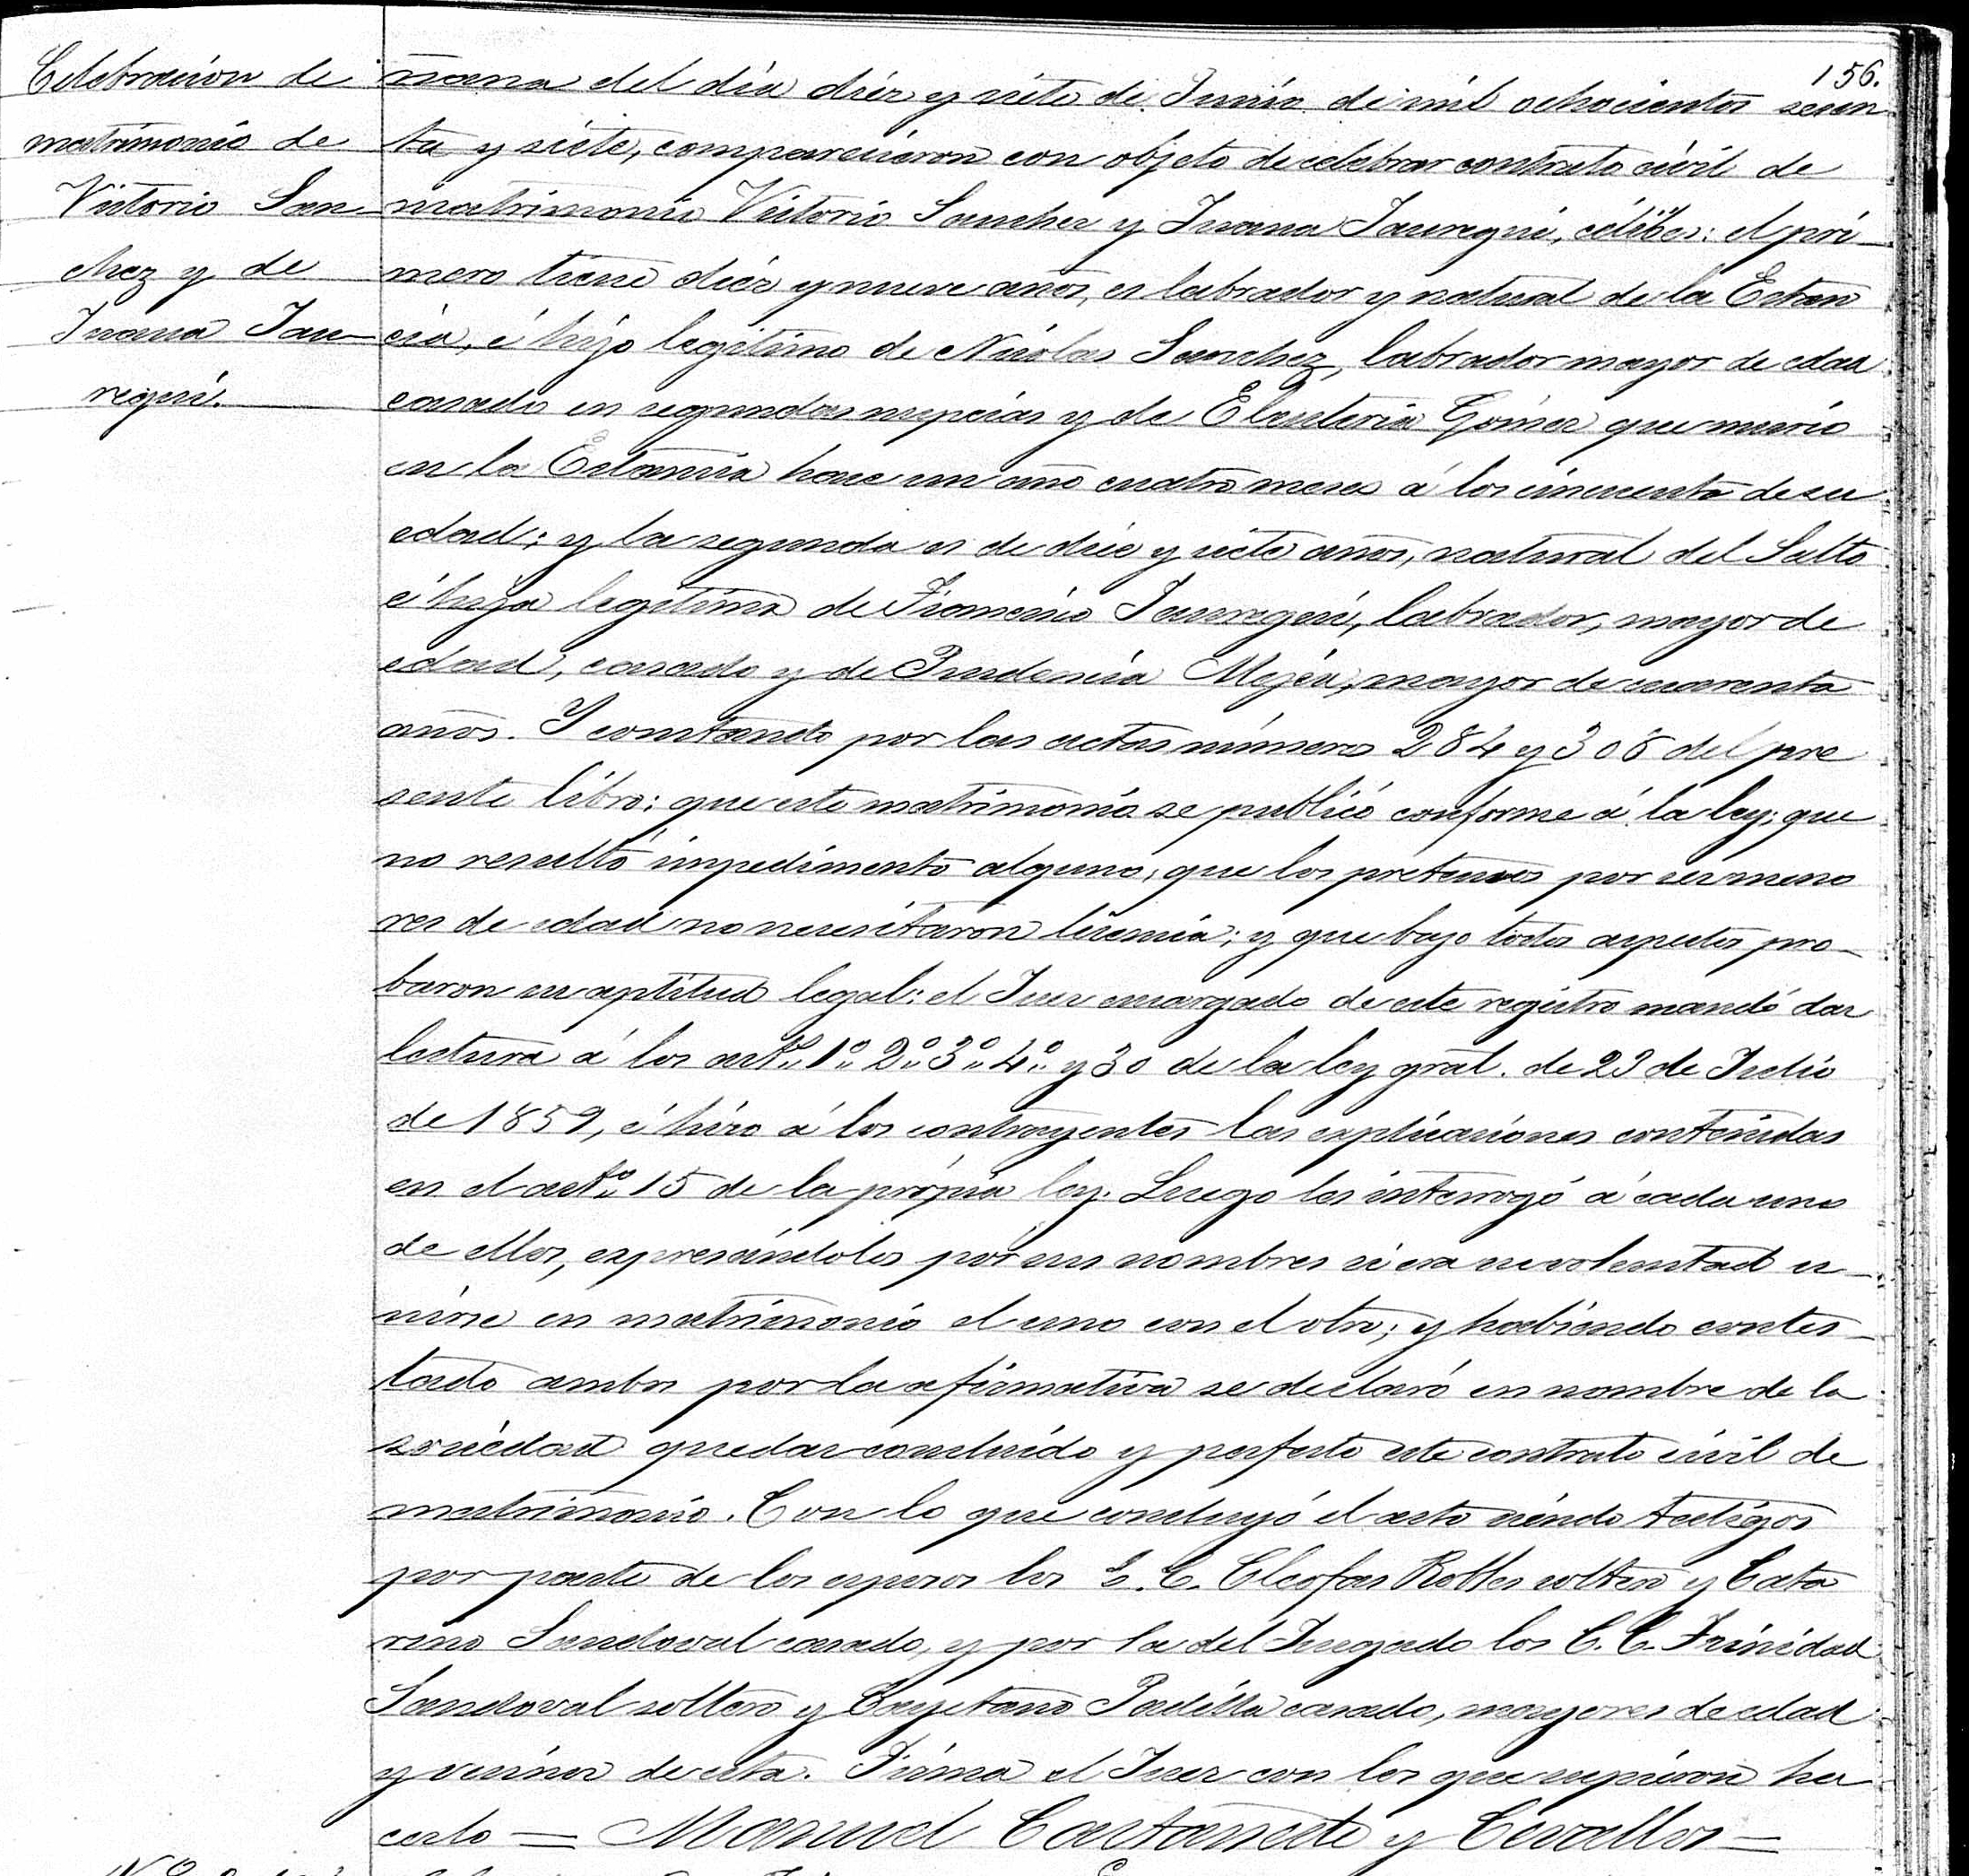 156.
Celebracion de
matrimonio de
Victorio San
chez y de
Juana Jau-
regui.
ñana del dia diez y siete de Junio de mil ochocientos seten
ta y siete, comparecieron con objeto de celebrar contrato civil de
matrimonio Victorio Sanchez y Juana Jauregui, célibes: el pri-
mero tiene diez y nueve años, es labrador y natural de la Estan
cia, é hijo legitimo de Nicolas Sanchez, labrador mayor de edad
casado en segundas nupcias y de Eleuteria Gómez que murió
en la Estancia hace un año cuatro meses á los cincuenta de su
edad; y la segunda es de diez y siete años, natural del Salto
é hija legitima de Jauregui, labrador, mayor de
edad, casado y de Prudencia Mejia, mayor de cuarenta
años. Y constando por las actas números 284 y 305 del pre
sente libro: que este matrimonio se publicó conforme á la ley; que
no resultó impedimento alguno, que los pretensos por ser meno
res de edad no necesitaron licencia; y que bajo todos aspectos pro-
baron su aptitud legal: el Juez encargado de este registro mandó dar
lectura á los artos. 1º 2º 3º 4º y 30 de la ley gral. de 23 de Julio
de 1859, é hizo á los contrayentes las explicaciones contenidas
en el arto. 15 de la própia ley. Luego los interrogó á cada uno
de ellos, expresándoles por sus nombres si era su voluntad u-
nirse en matrimonio el uno con el otro; y habiendo contes-
tado ambos por la afirmativa se declaró en nombre de la
sociedad quedar concluido y perfecto este contrato civil de
matrimonio. Con lo que concluyó el acto siendo testigos
por parte de los esposos los C.C. Cleofas Robles soltero y Cata
rino Sandoval casado, y por la del Juzgado los C.C. Trinidad
Sandoval soltero y Cayetano Padilla casado, mayores de edad
y vecinos de esta. Firma el Juez con los que supieron ha
cerlo = Manuel Castañeda y Cevallos =